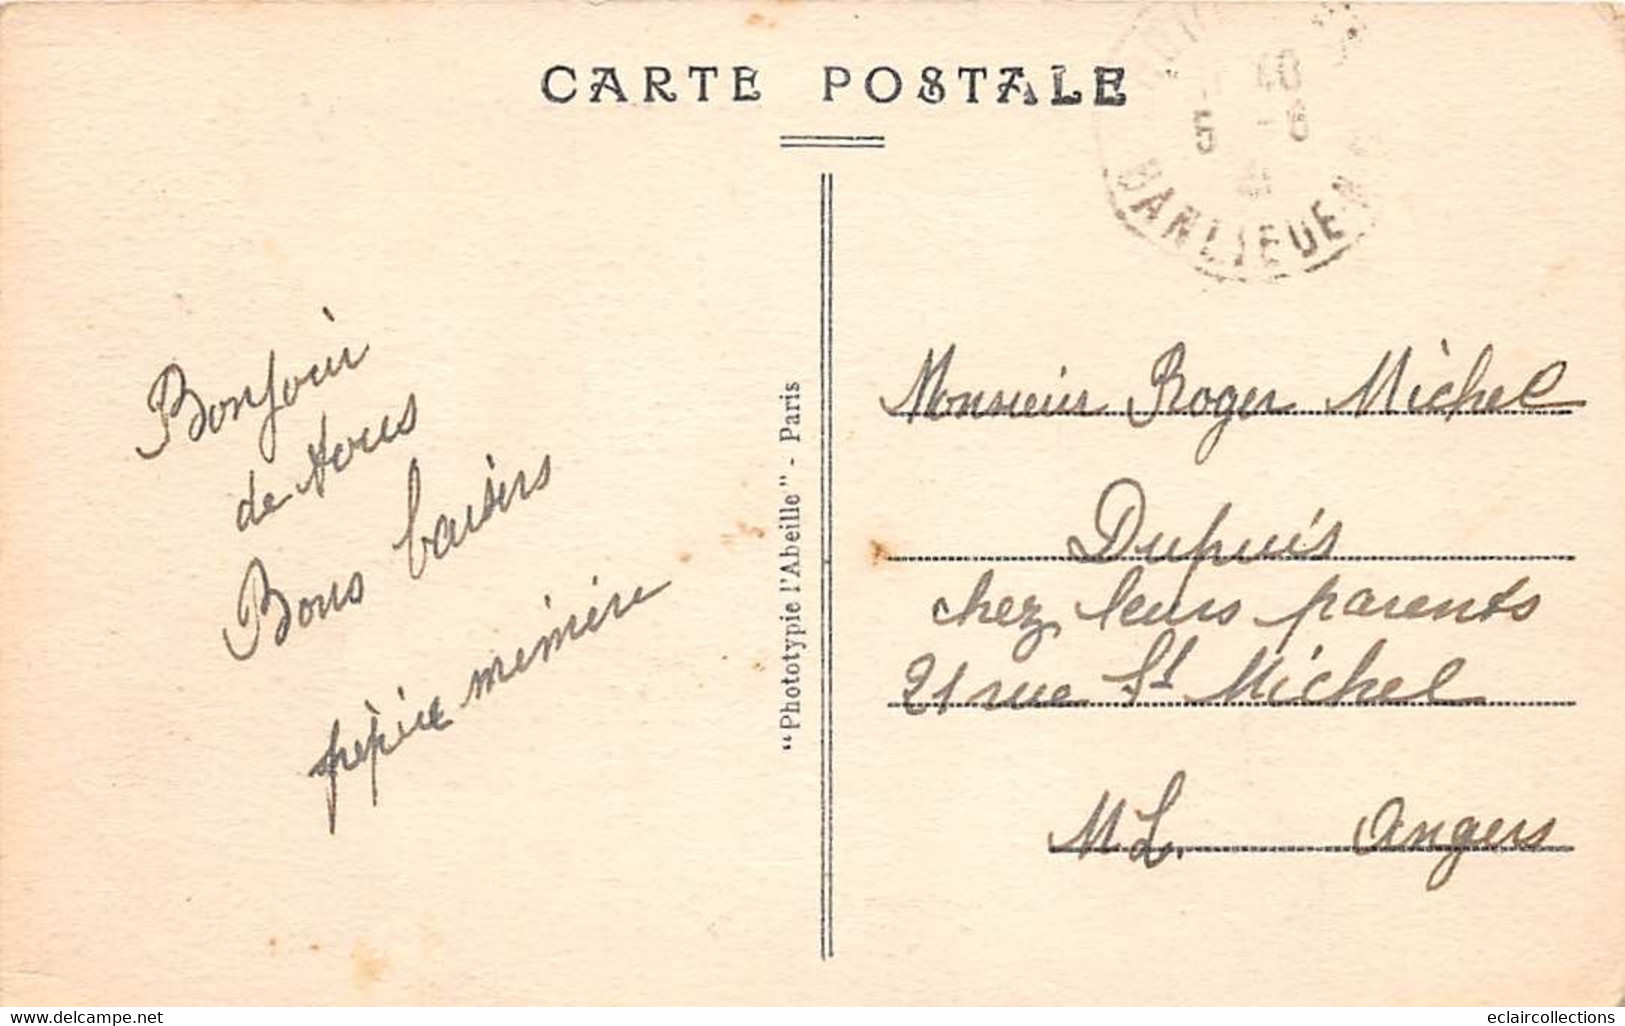 CARTE POSTALE
5 - 6
BANLIEUE
Bonjour
de tous
Bons baisers
pépère mémère
"Phototypie l'Abeille" - Paris
Monsieur Roger Michel
Dupuis
chez leurs parents
21 rue St Michel
M.L. Angers
delcampe.net
eclaircollections